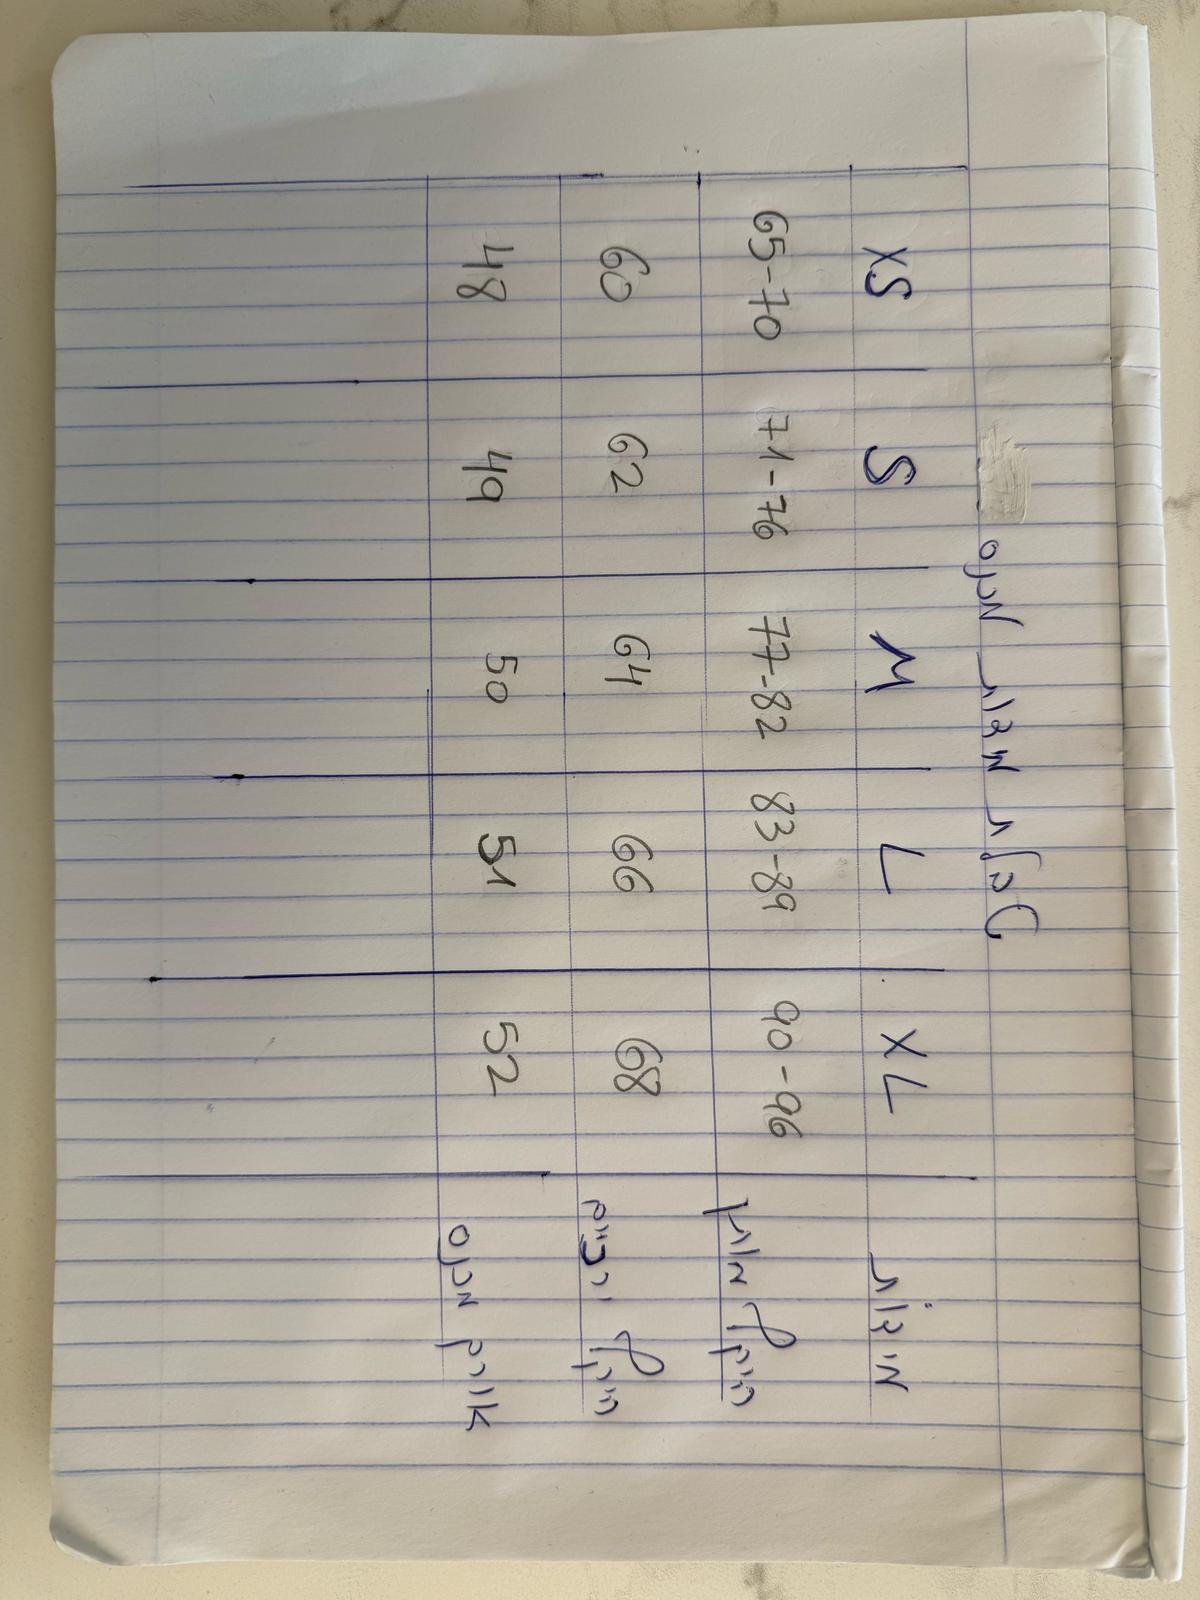 טבלת מידות מכנס
XL L M S XS מידות
90-96 83-89 77-82 71-76 65-70 היקף מותן
68 66 64 62 60 היקף ירכיים
52 51 50 49 48 אורך מכנס